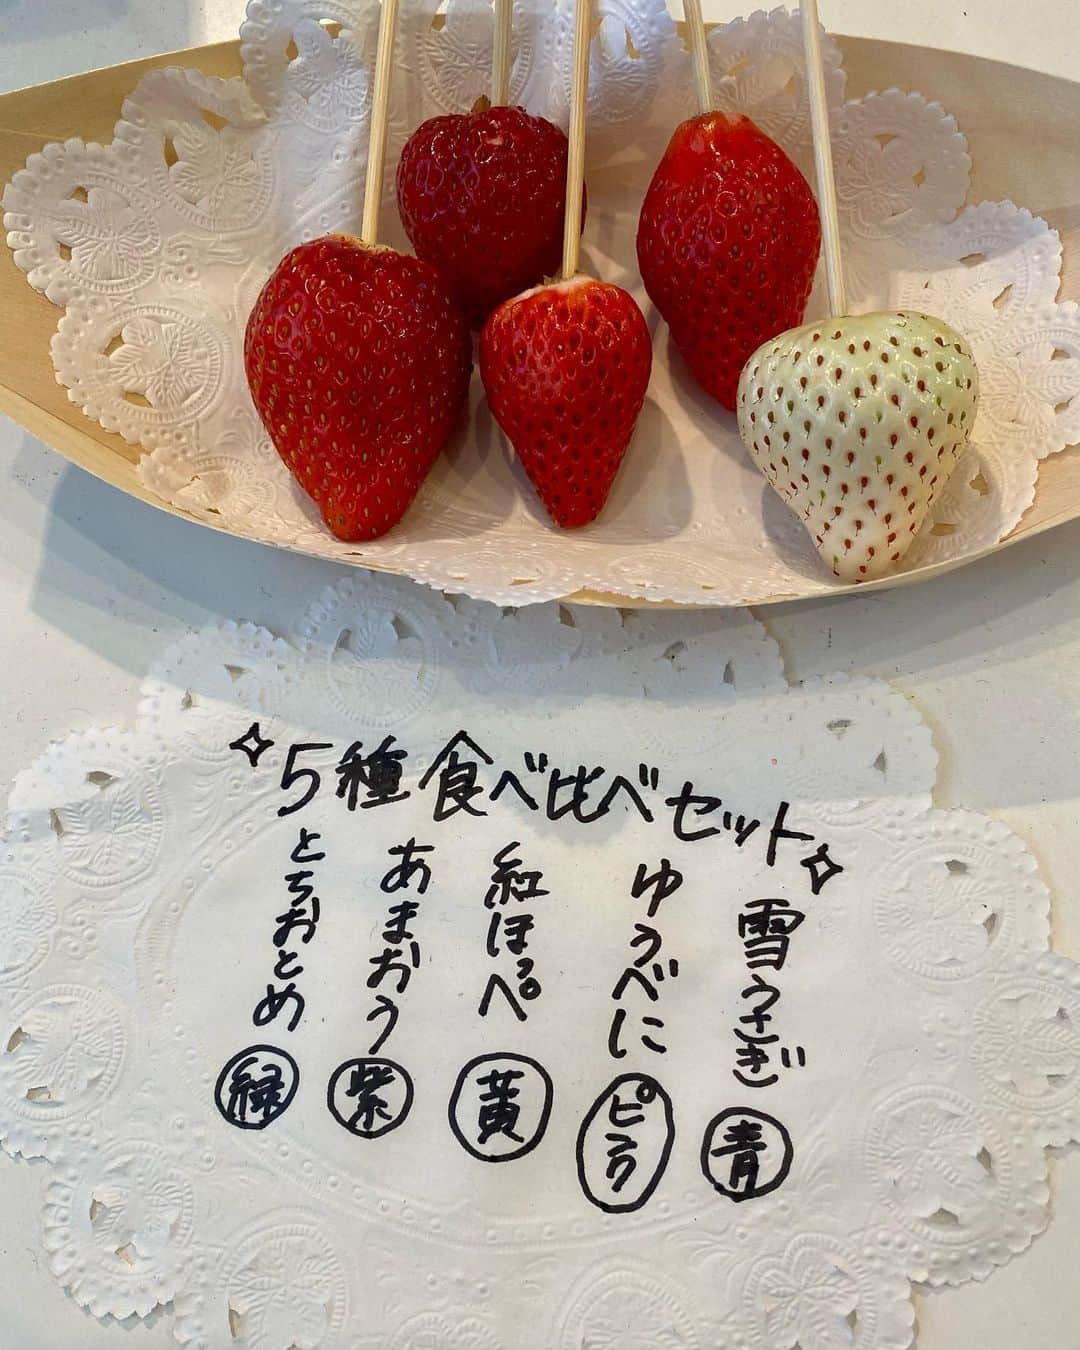 ✧5種食べ比べセット✧
とちおとめ 緑
あまおう 紫
紅ほっぺ 黄
ゆうべに ピンク
雪うさぎ 青